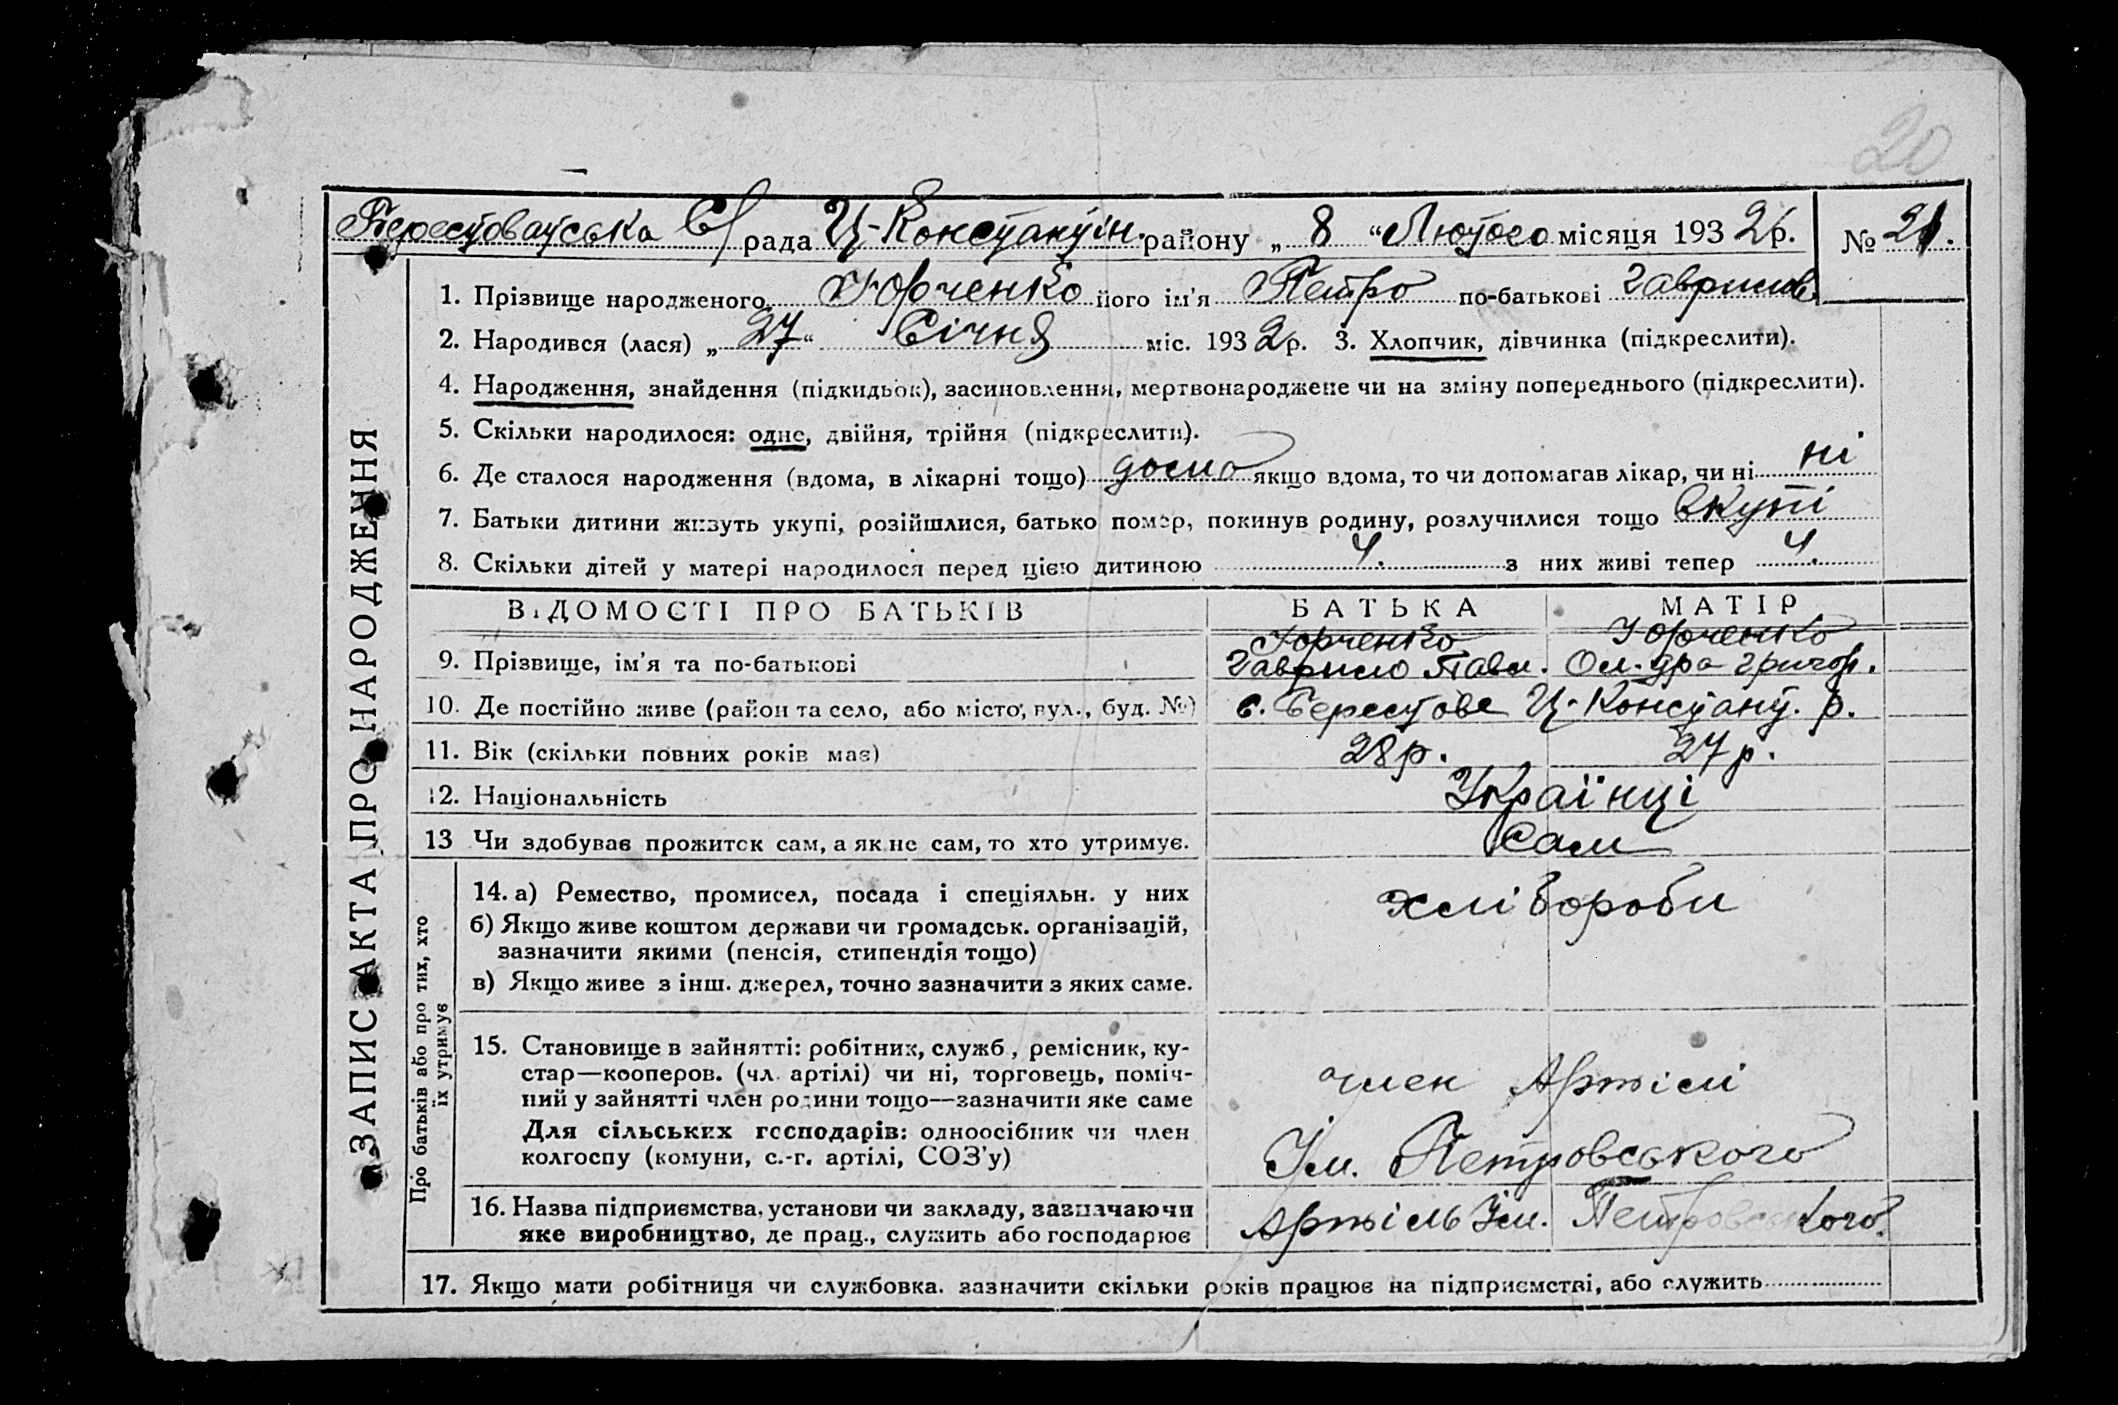 20
Берестоватська С/рада Ц-Константін. району „ 8 “ Лютого місяця 1932 р. № 21.
ЗАПИС АКТА ПРО НАРОДЖЕННЯ
1. Прізвище народженого Юрченко його ім'я Петро по-батькові Гаврилов.
2. Народився (лася) „ 27 “ Січня міс. 1932 р. 3. Хлопчик, дівчинка (підкреслити).
4. Народження, знайдення (підкидьок), засиновлення, мертвонароджене чи на зміну попереднього (підкреслити).
5. Скільки народилося: одне, двійня, трійня (підкреслити).
6. Де сталося народження (вдома, в лікарні тощо) дома якщо вдома, то чи допомагав лікар, чи ні ні
7. Батьки дитини живуть укупі, розійшлися, батько помер, покинув родину, розлучилися тощо Вкупі
8. Скільки дітей у матері народилося перед цією дитиною 4. з них живі тепер 4.
ВІДОМОСТІ ПРО БАТЬКІВ БАТЬКА МАТІР
Юрченко Юрченко
9. Прізвище, ім'я та по-батькові Гаврило Павл. Ол-дра Григор.
10. Де постійно живе (район та село, або місто, вул., буд. №) с. Берестове Ц-Констант. р.
11. Вік (скільки повних років має) 28 р. 27 р.
12. Національність Українці
13 Чи здобуває прожиток сам, а як не сам, то хто утримує. Сам
Про батьків або про тих, хто їх утримує
14. а) Ремество, промисел, посада і спеціяльн. у них хлібороби
б) Якщо живе коштом держави чи громадськ. організацій,
зазначити якими (пенсія, стипендія тощо)
в) Якщо живе з інш. джерел, точно зазначити з яких саме.
15. Становище в зайнятті: робітник, служб., ремісник, ку-
стар—кооперов. (чл. артілі) чи ні, торговець, поміч- член Артілі
ний у зайнятті член родини тощо—зазначити яке саме
Для сільських господарів: одноосібник чи член
колгоспу (комуни, с.-г. артілі, СОЗ'у) Ім. Петровського
16. Назва підприємства, установи чи закладу, зазначаючи
яке виробництво, де прац., служить або господарює Артіль Ім. Петровського.
17. Якщо мати робітниця чи службовка. зазначити скільки років працює на підприємстві, або служить